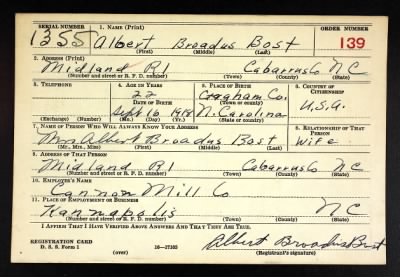 SERIAL NUMBER 1. NAME (Print) ORDER NUMBER
1355 Albert Broadus Bost 139
(First) (Middle) (Last)
2. ADDRESS (Print)
Midland R1 Cabarrus Co NC
(Number and street or R. F. D. number) (Town) (County) (State)
3. TELEPHONE 4. AGE IN YEARS 5. PLACE OF BIRTH 6. COUNTRY OF CITIZENSHIP
22 Co.
DATE OF BIRTH (Town or county)
Sept 16 1918 N. Carolina U.S.A.
(Exchange) (Number) (Mo.) (Day) (Yr.) (State or country)
7. NAME OF PERSON WHO WILL ALWAYS KNOW YOUR ADDRESS 8. RELATIONSHIP OF THAT PERSON
Mrs Albert Broadus Bost Wife
(Mr., Mrs., Miss) (First) (Middle) (Last)
9. ADDRESS OF THAT PERSON
Midland R1 Cabarrus Co NC
(Number and street or R. F. D. number) (Town) (County) (State)
10. EMPLOYER'S NAME
Cannon Mill Co
11. PLACE OF EMPLOYMENT OR BUSINESS
Kannapolis NC
(Number and street or R. F. D. number) (Town) (County) (State)
I AFFIRM THAT I HAVE VERIFIED ABOVE ANSWERS AND THAT THEY ARE TRUE.
REGISTRATION CARD
D. S. S. Form 1 16—17105 Albert Broadus Bost
(over) (Registrant's signature)